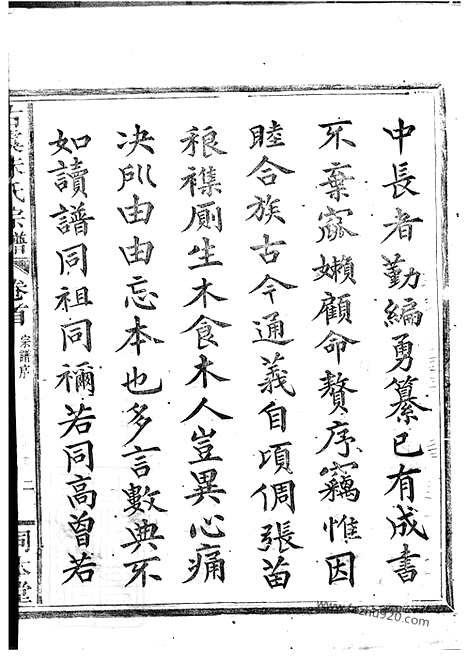 中長者勤編勇纂已有成書
不棄窳嬾顧命贅序竊惟因
睦合族古今通義自頃倜張苗
稂襍厠生木食木人豈異心痛
决所由由忘本也多言數典不
如讀譜同祖同禰若同高曾若
朱氏宗譜
卷首
宗譜序
二
堂